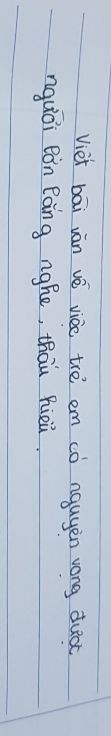 Viết bài văn về việc trẻ em có nguyện vọng được
người lớn lắng nghe, thấu hiểu.